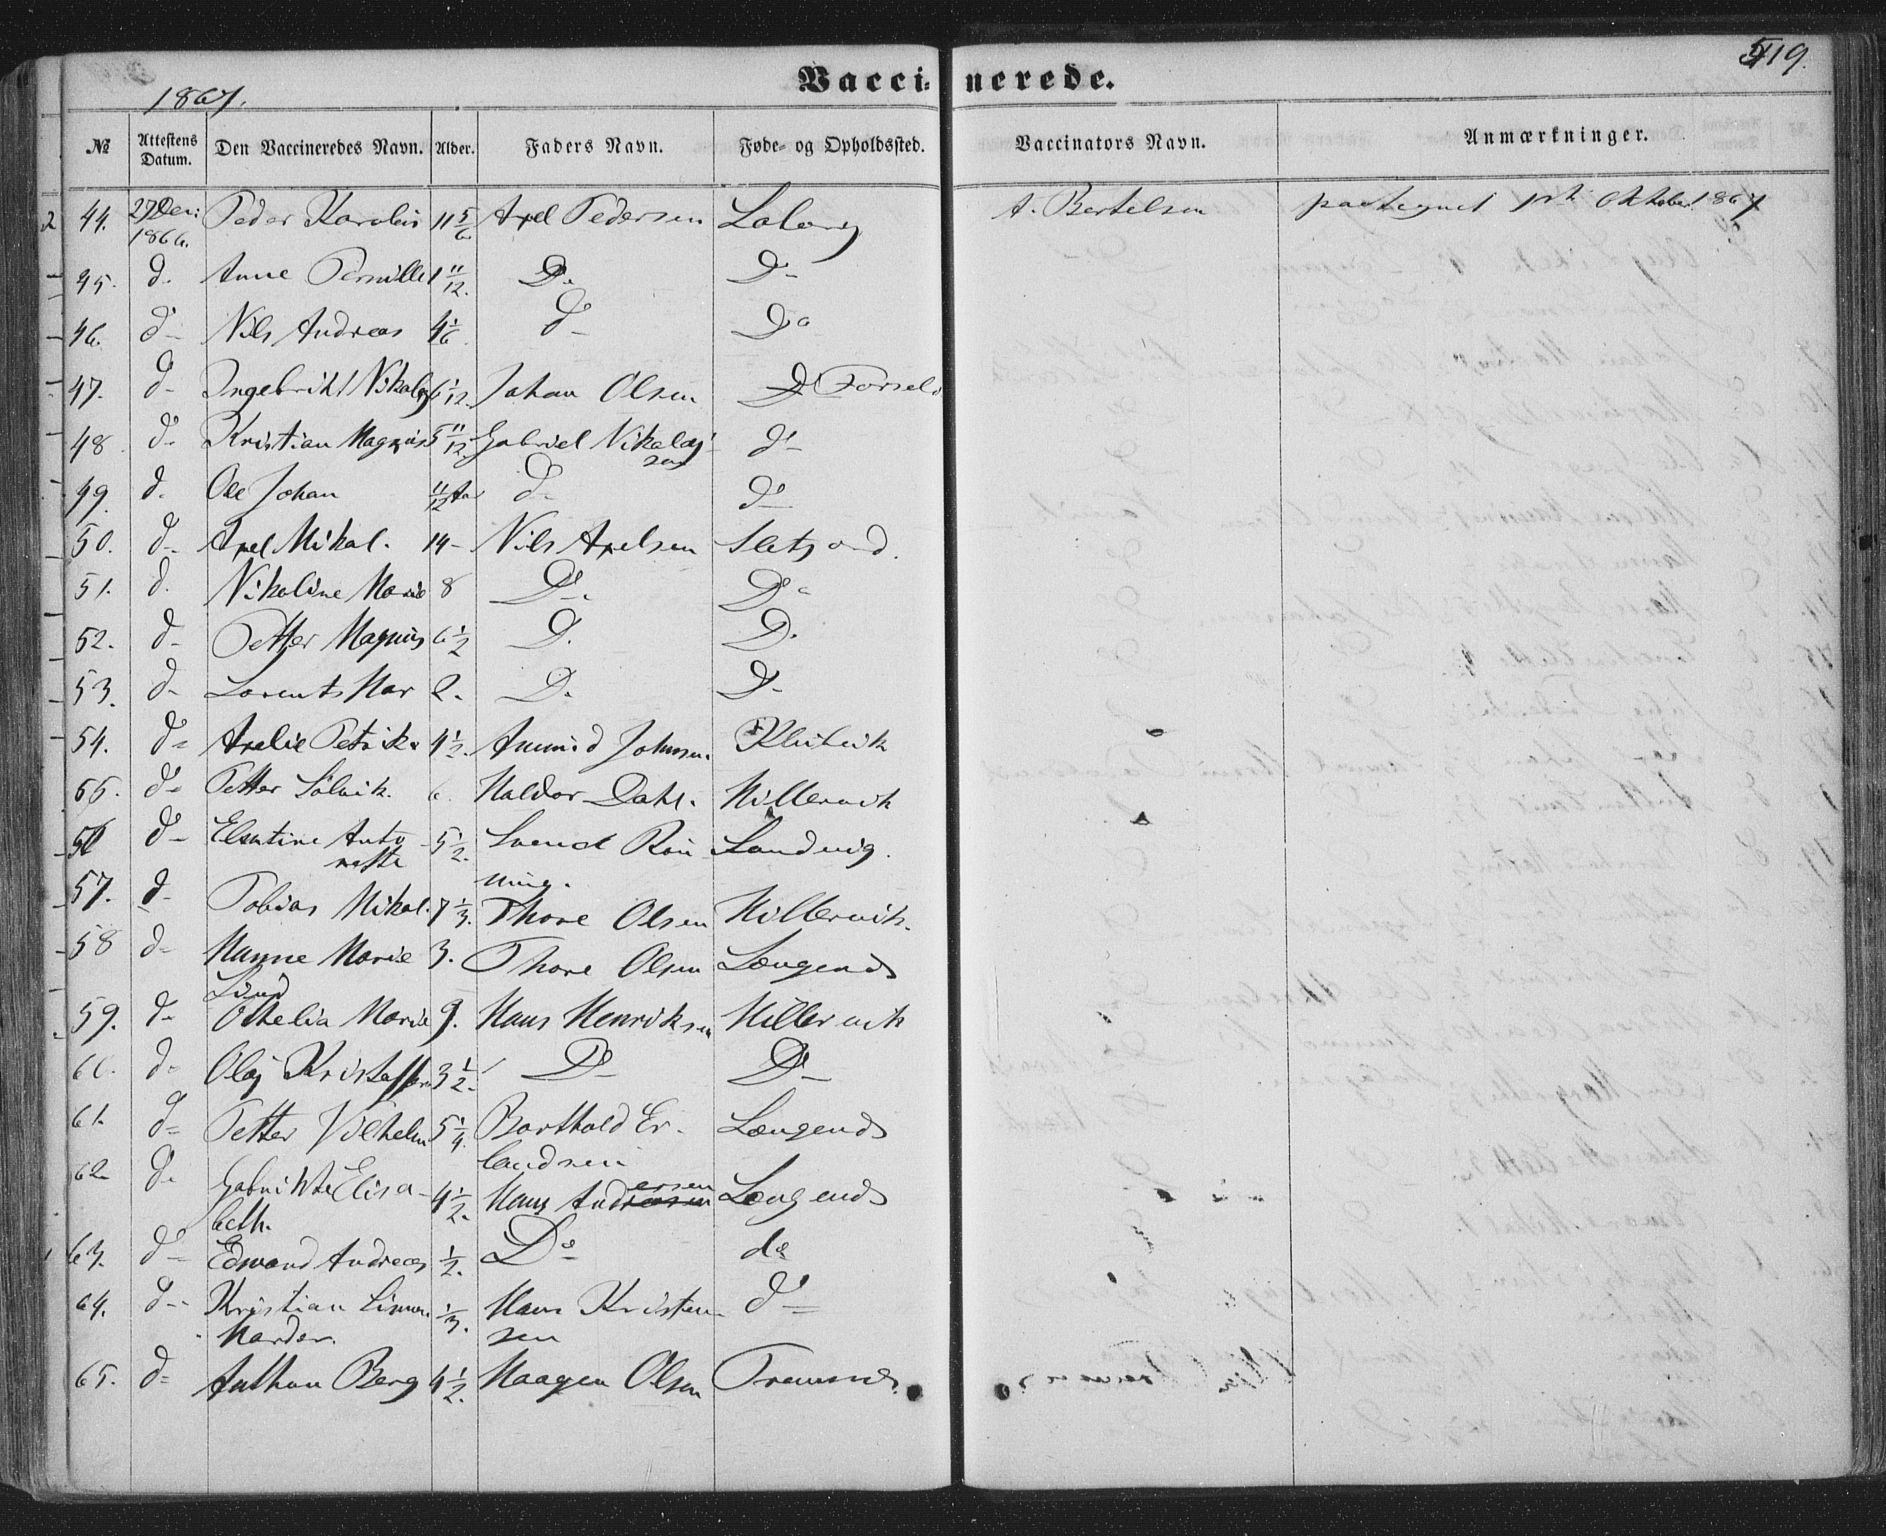 Vaccinerede.
519.
1867.
№ Attestens Datum. Den Vaccineredes Navn. Alder. Faders Navn. Føde- og Opholdssted. Vaccinators Navn. Anmærkninger.
44. 1866. Peder Karolius 11 5/6 Axel Pedersen A. Bertelsen Oktober 1867
45. d. Anne Pernille 1 11/12. D. D-
46. d- Nils Andreas 4 1/6 d- Do
47. d- Ingebrikt Nikolay 6 1/12. Johan Olsen Do Forseld
48 d- Kristian Magnus 5 11/12 Gabriel Nikolaj- do-
sen
49. d. Ole Johan 11/12 Aar d- do-
50. d- Axel Mikal. 14- Nils Axelsen
51. d. Nikoline Marie 8 Do- Do
52. d- Petter Magnus 6 1/2 D. D.
53. d- Lorents Mar 2. D. D-
54. d- Petrike 4 1/2. Amund Johnsen
55. d- Petter Solvik. 6. Haldor Dahl. Hillervik
56 d- Elentine Anto- 5 1/2. Svend Røn- Sandvig.
nette ning.
57. d- Tobias Mikal. 7 1/3. Thore Olsen Hillervik.
58 d- Hanne Marie 3. Thore Olsen Længenes
Lind
59. d- Othelia Marie 9. Hans Henriksen Hillervik
60. d- Olaj Kristoffer 3 1/2. Do- Do-
61. d- Petter Vilhelm 5 1/4. Barthold Er- Længenes
landsen
62 d. Elisa- 4 1/2. Hans Andersen Længenes
beth.
63. d- Edvard Andreas 1/2. Do- do
64. d- Kristian Simon 1/3. Hans Kristen- do-
Marder. sen
65. d- Anthon Berg 4 1/2. Haagen Olsen Tranesnes.